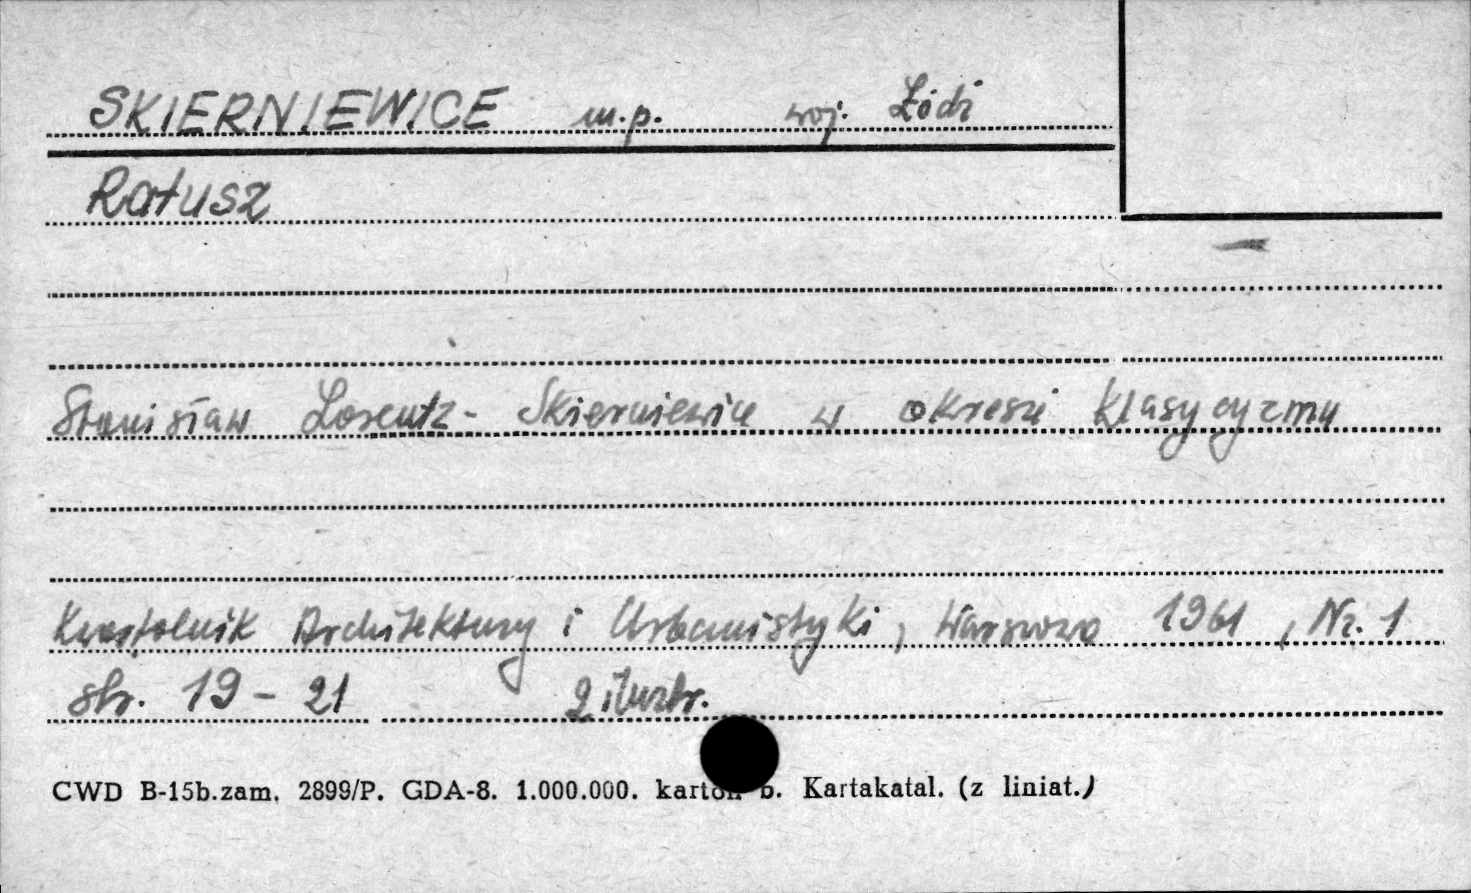 SKIERNIEWICE m.p. woj. Łódź
Ratusz
Stanisław Lorentz - Skierniewice w okresie klasycyzmu
Kwartalnik Architektury i Urbanistyki, Warszawa 1961, Nr. 1
str. 19 - 21 2 ilustr.
CWD B-15b.zam. 2899/P. GDA-8. 1.000.000. karton b. Kartakatal. (z liniat.)